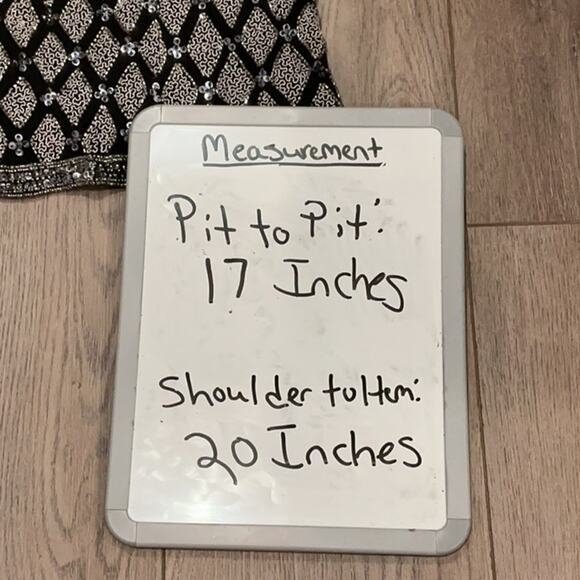 Measurement
Pit to Pit:
17 Inches
Shoulder to Hem:
20 Inches